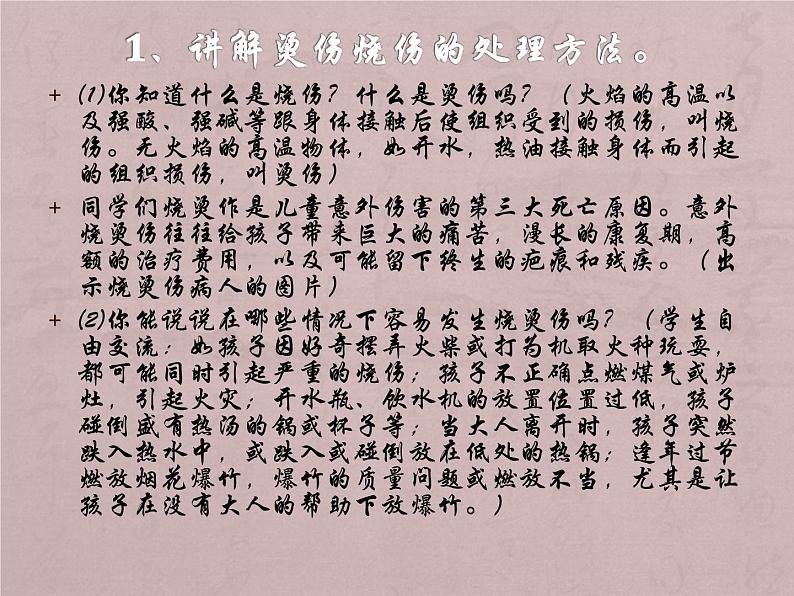 1、讲解烫伤烧伤的处理方法。
(1)你知道什么是烧伤？什么是烫伤吗？（火焰的高温以
及强酸、强碱等跟身体接触后使组织受到的损伤，叫烧
伤。无火焰的高温物体，如开水，热油接触身体而引起
的组织损伤，叫烫伤）
同学们烧烫作是儿童意外伤害的第三大死亡原因。意外
烧烫伤往往给孩子带来巨大的痛苦，漫长的康复期，高
额的治疗费用，以及可能留下终生的疤痕和残疾。（出
示烧烫伤病人的图片）
(2)你能说说在哪些情况下容易发生烧烫伤吗？（学生自
由交流：如孩子因好奇摆弄火柴或打为机取火种玩耍，
都可能同时引起严重的烧伤；孩子不正确点燃煤气或炉
灶，引起火灾；开水瓶、饮水机的放置位置过低，孩子
碰倒盛有热汤的锅或杯子等；当大人离开时，孩子突然
跌入热水中，或跌入或碰倒放在低处的热锅；逢年过节
燃放烟花爆竹，爆竹的质量问题或燃放不当，尤其是让
孩子在没有大人的帮助下放爆竹。）